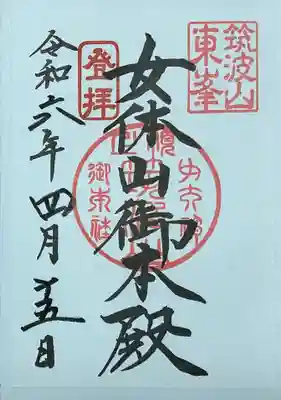 筑波山
東峯
女体山御本殿
登拝
令和六年四月 五日